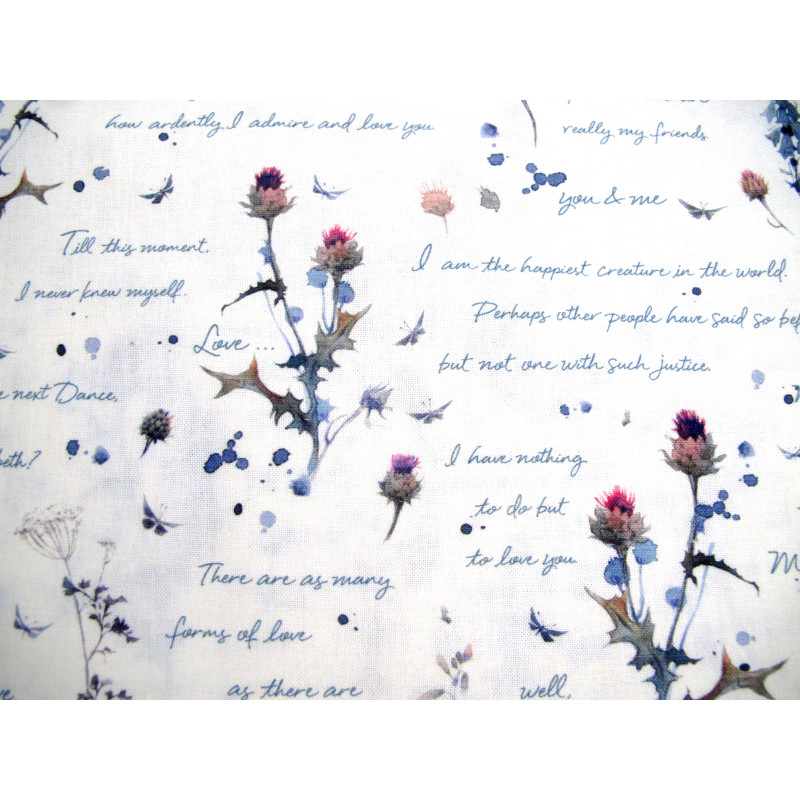 how ardently I admire and love you
really my friends.
you & me
Till this moment,
I never knew myself.
I am the happiest creature in the world.
Perhaps other people have said so bef
but not one with such justice.
Love ...
e next Dance,
beth?
I have nothing
to do but
to love you.
There are as many
forms of love
as there are
well,
M